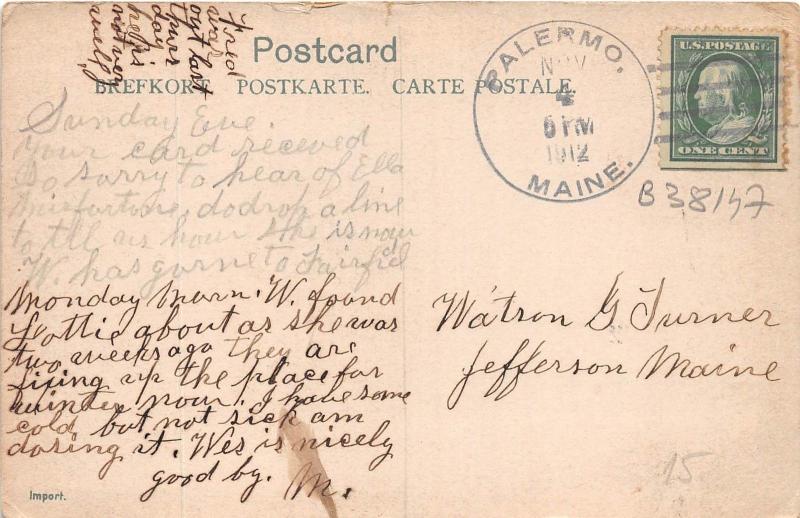 Fred
was
out last
thurs
day
he is
not ver
well
Postcard
BREFKORT. POSTKARTE. CARTE POSTALE.
PALERMO,
NOV
4
6 PM
1912
MAINE.
U.S. POSTAGE
ONE CENT
B38147
Sunday Eve.
Your card receved
So sorry to hear of Ella
misfortune, do drop a line
to tell us how she is now
W. has gorne to Fairfield
Monday Morn. W. found
Lottie about as she was
two weeks ago they are
fixing up the place for
winter now. I have some
cold but not sick am
dosing it. Wes is nicely
good by. M.
Watson G Turner
Jefferson Maine
15.
Import.